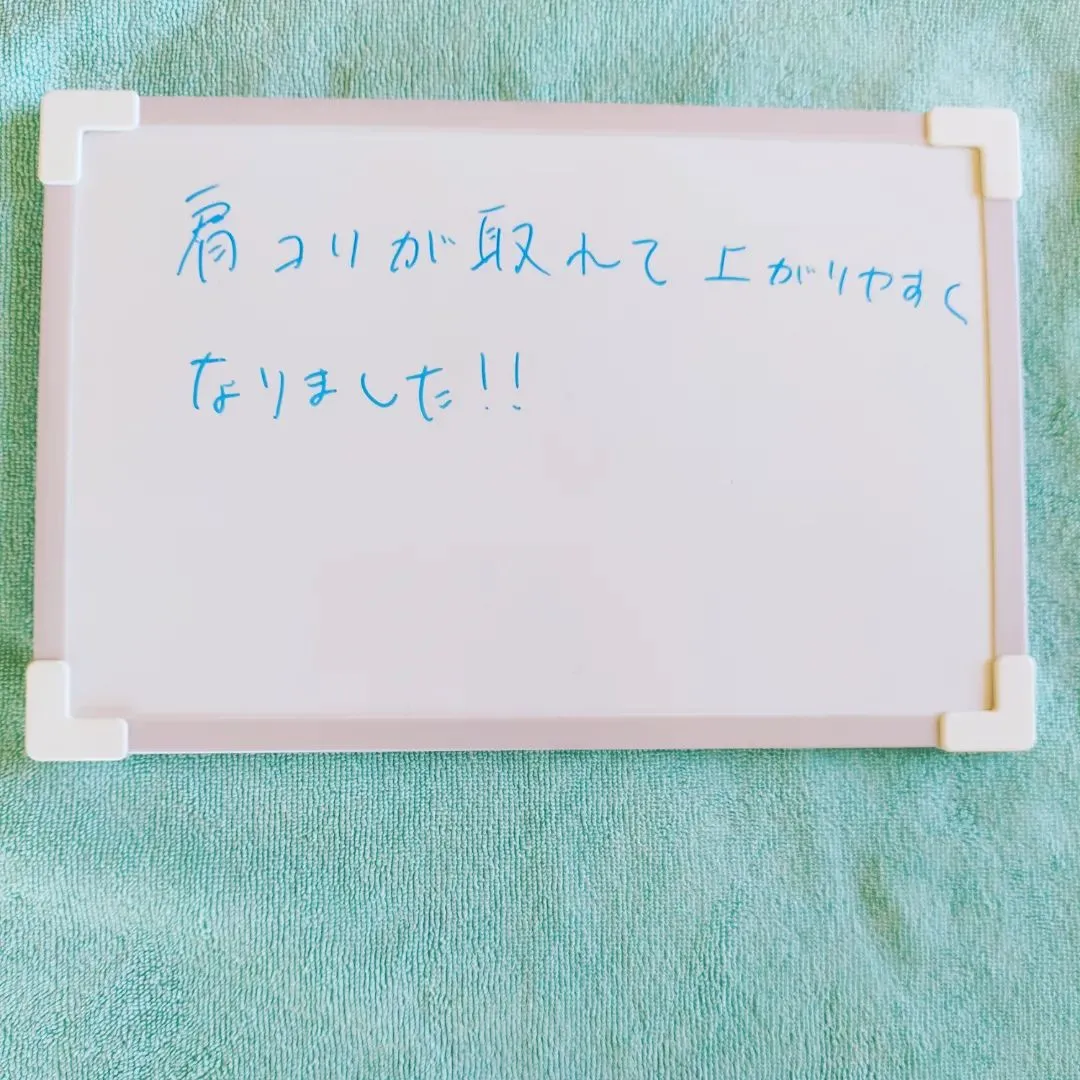 肩コリが取れて上がりやすく
なりました!!